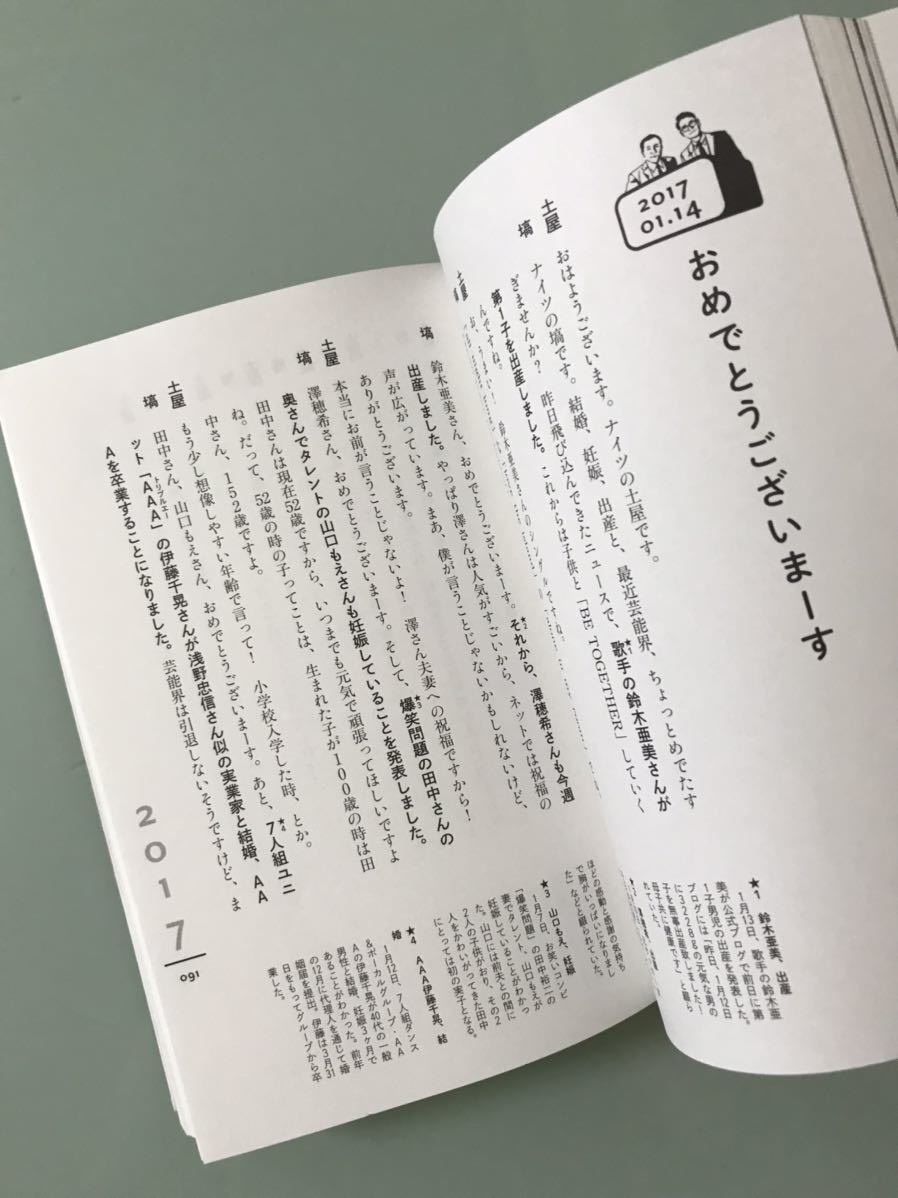 2017
01.14
おめでとうございまーす
土屋　おはようございます。ナイツの土屋です。
塙　ナイツの塙です。結婚、妊娠、出産と、最近芸能界、ちょっとめでたす
ぎませんか？　昨日飛び込んできたニュースで、★1歌手の鈴木亜美さんが
第1子を出産しました。これからは子供と「BE TOGETHER」していく
んですね。
土屋
★1　鈴木亜美、出産
1月13日、歌手の鈴木亜
美が公式ブログで前日に第
1子男児の出産を発表した。
ブログには「昨日、1月12日
に3228gの元気な男の
子を無事出産致しました！
母子共に健康です」と綴ら
れていた。
塙　鈴木亜美さん、おめでとうございまーす。★2それから、澤穂希さんも今週
出産しました。やっぱり澤さんは人気がすごいから、ネットでは祝福の
声が広がっています。まあ、僕が言うことじゃないかもしれないけど、
ありがとうございます。
土屋　本当にお前が言うことじゃないよ！　澤さん夫妻への祝福ですから！
塙　澤穂希さん、おめでとうございまーす。そして、★3爆笑問題の田中さんの
奥さんでタレントの山口もえさんも妊娠していることを発表しました。
田中さんは現在52歳ですから、いつまでも元気で頑張ってほしいですよ
ね。だって、52歳の時の子ってことは、生まれた子が100歳の時は田
中さん、152歳ですよ。
土屋　もう少し想像しやすい年齢で言って！　小学校入学した時、とか。
塙　田中さん、山口もえさん、おめでとうございまーす。あと、★4 7人組ユニ
ット「AAA」の伊藤千晃さんが浅野忠信さん似の実業家と結婚、AA
トリプルエー
Aを卒業することになりました。芸能界は引退しないそうですけど、ま
ほどの感動と感謝の気持ち
で胸がいっぱいになりまし
た」などと綴られていた。
★3　山口もえ、妊娠
1月7日、お笑いコンビ
「爆笑問題」の田中裕二の
妻でタレント、山口もえが
妊娠していることがわかっ
た。山口には前夫との間に
2人の子供がおり、その2
人をかわいがってきた田中
にとっては初の実子となる。
★4　AAA伊藤千晃、結
婚
1月12日、7人組ダンス
&ボーカルグループ・AA
Aの伊藤千晃が40代の一般
男性と結婚、妊娠3ヶ月で
あることがわかった。前年
の12月に代理人を通じて婚
姻届を提出。伊藤は3月31
日をもってグループから卒
業した。
2017
091